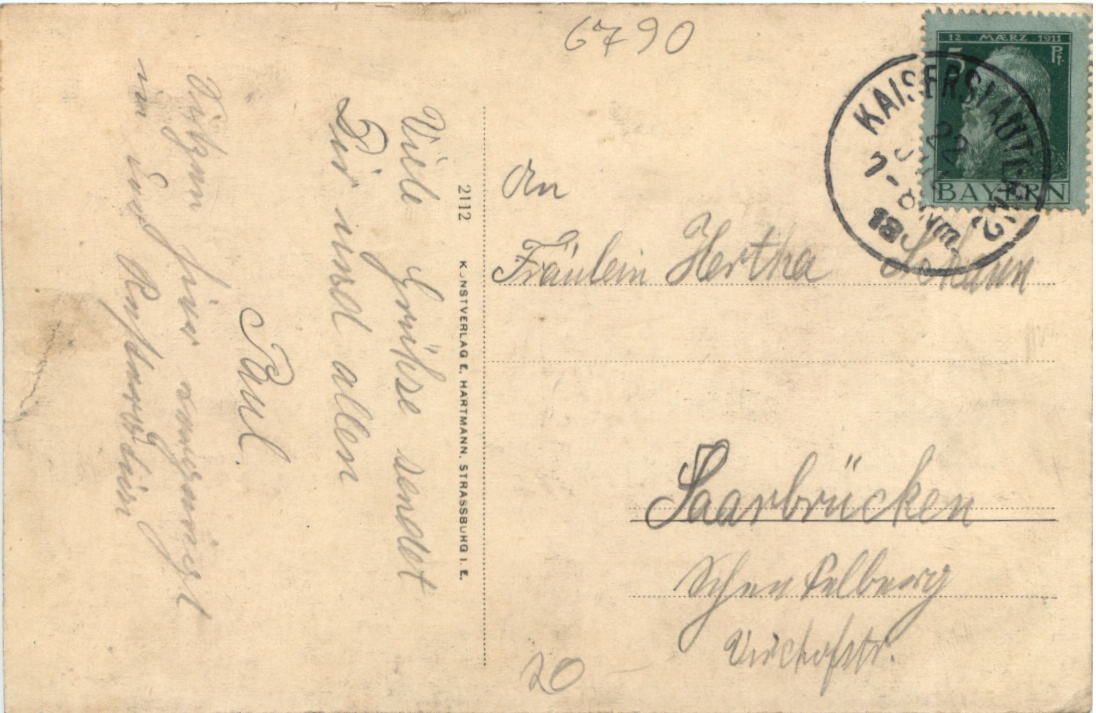 6790
12 MÆRZ 1911
5 Pf
BAYERN
KAISERSLAUTERN
22
7-8 Nm
12
Viele Grühse sendet
Dir und allen
Paul.
Sitzen hier vergnügt
im
2112 KUNSTVERLAG E. HARTMANN, STRASSBURG I. E.
An
Fräulein Hertha
Saarbrücken
Schenkelberg
Virchofstr.
20